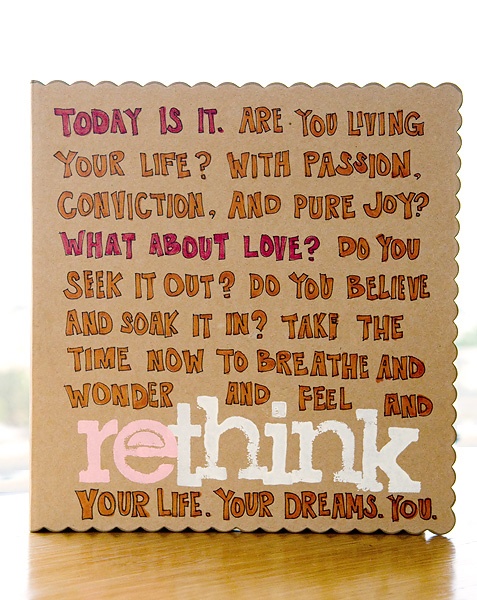 TODAY IS IT. ARE YOU LIVING
YOUR LIFE? WITH PASSION,
CONVICTION, AND PURE JOY?
WHAT ABOUT LOVE? DO YOU
SEEK IT OUT? DO YOU BELIEVE
AND SOAK IT IN? TAKE THE
TIME NOW TO BREATHE AND
WONDER AND FEEL AND
rethink
YOUR LIFE. YOUR DREAMS. YOU.